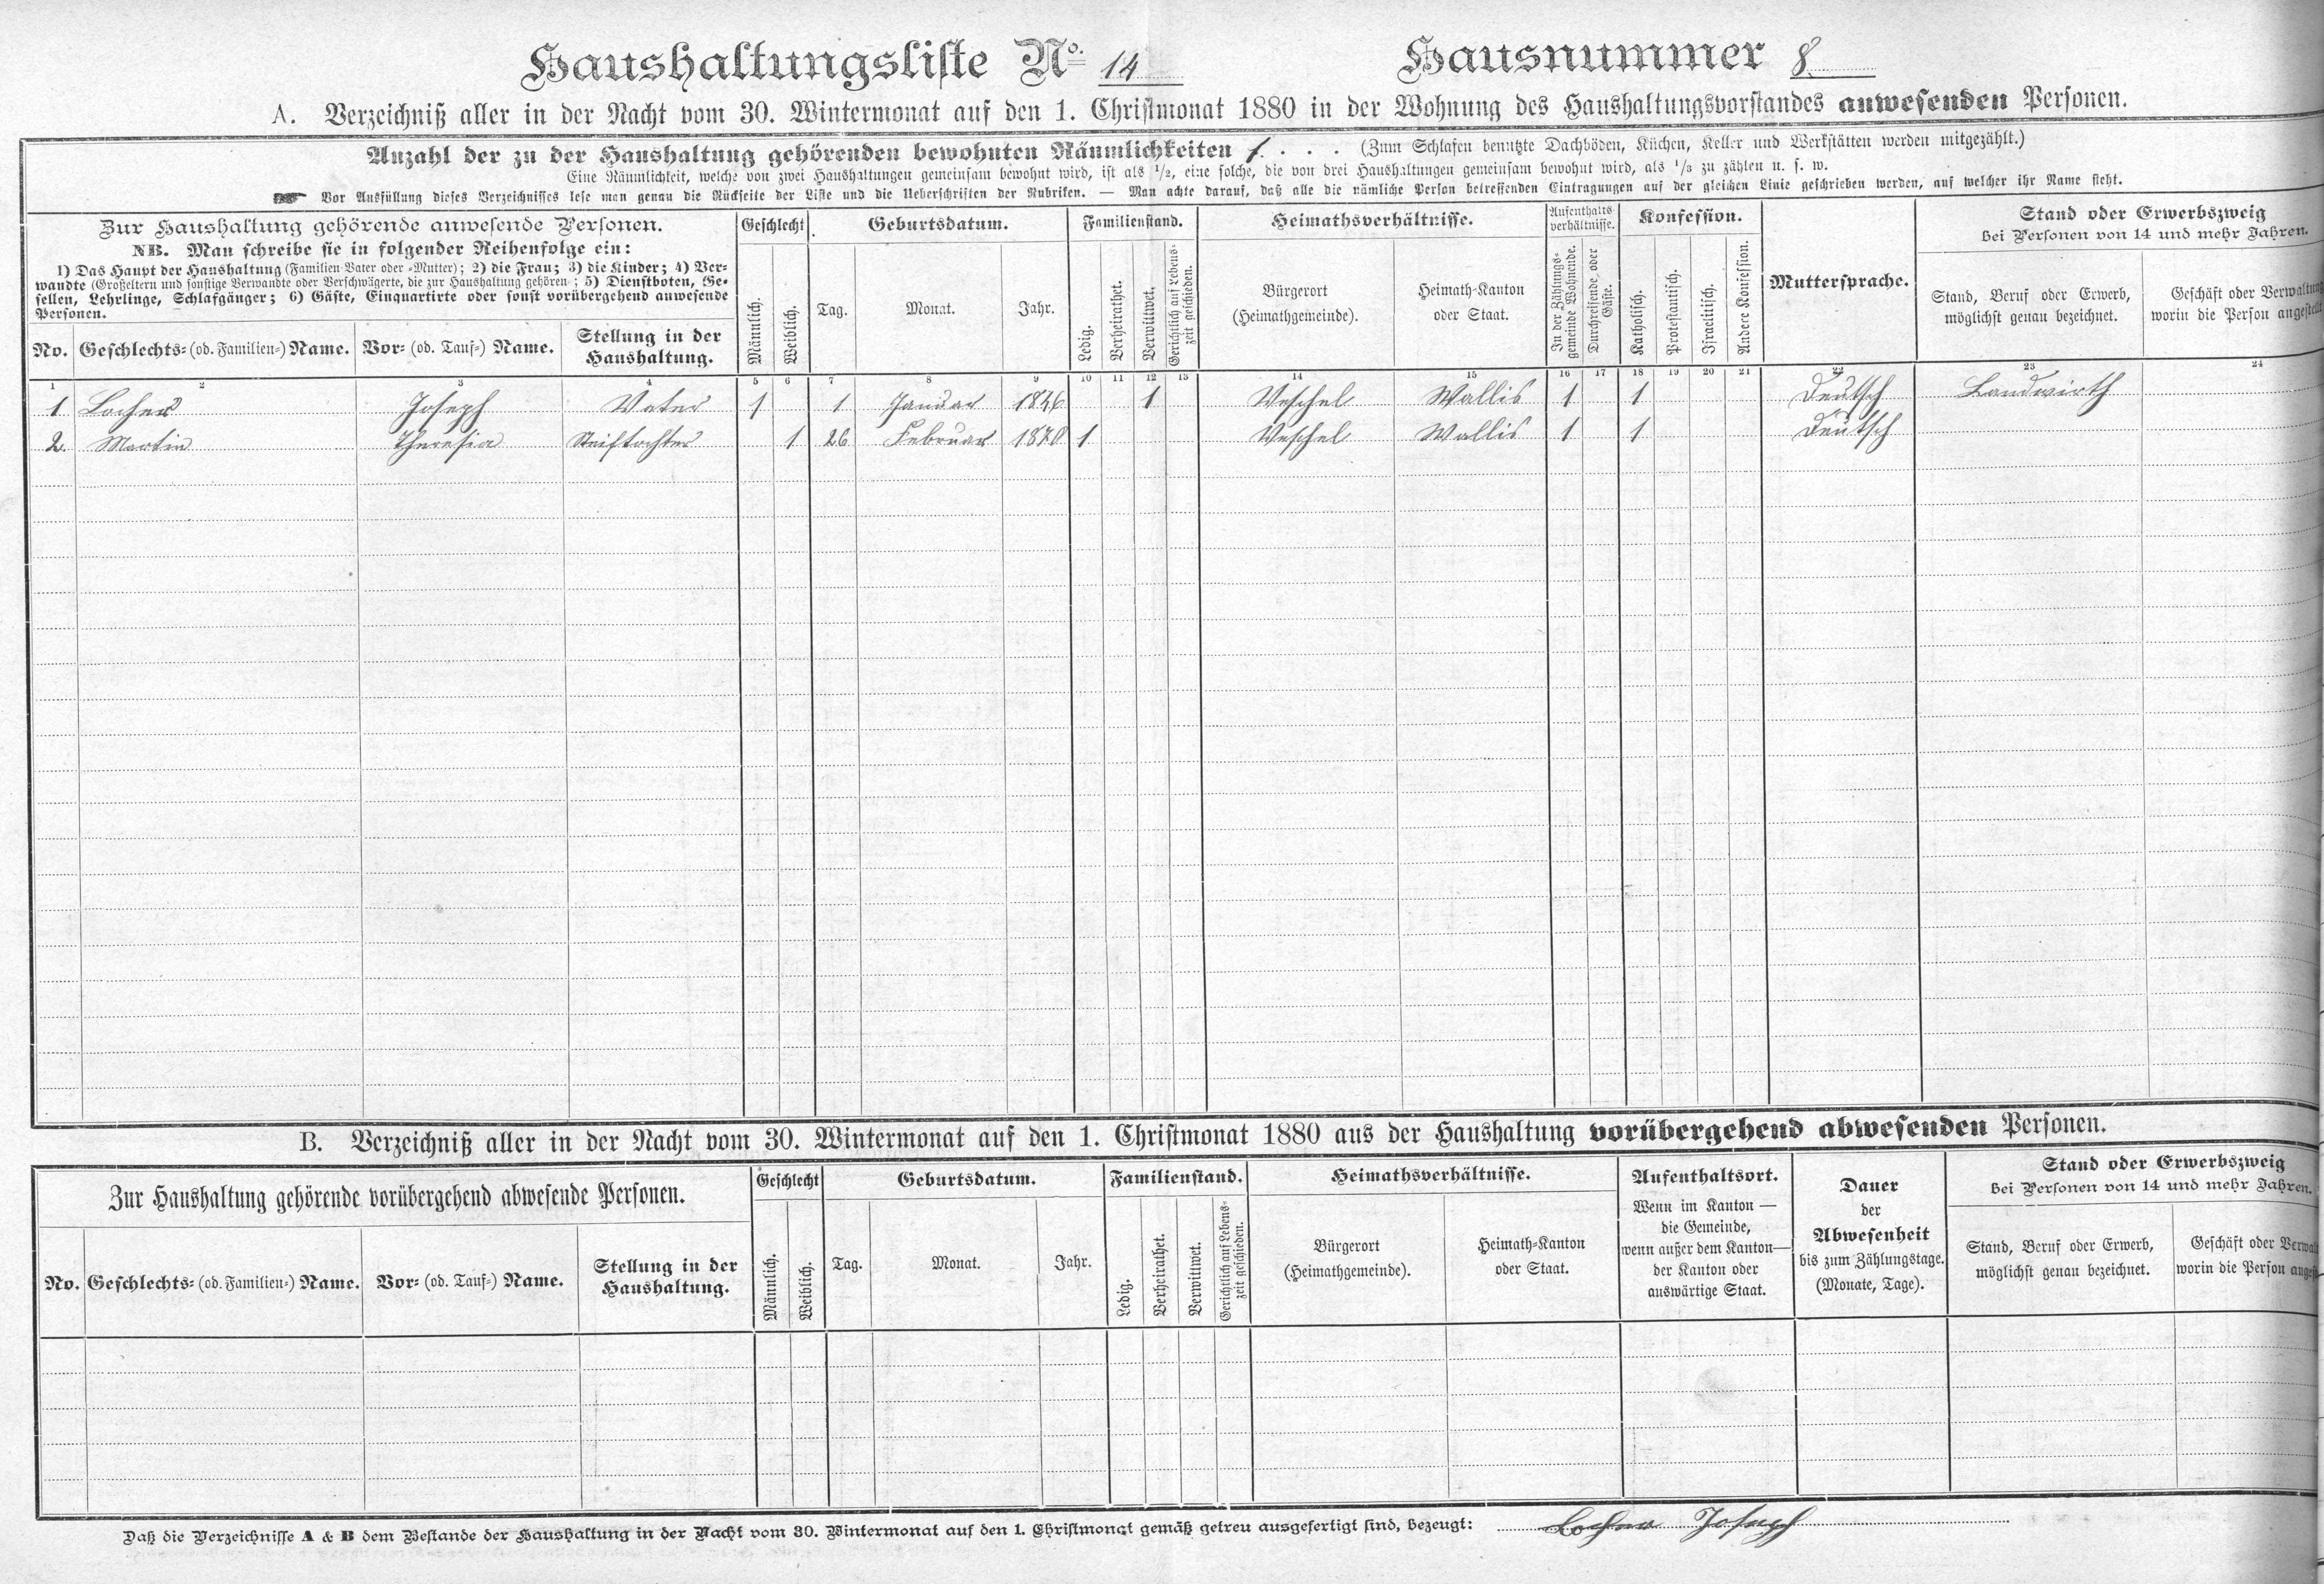 Haushaltungsliste No. 14 Hausnummer 8
A. Verzeichniß aller in der Nacht vom 30. Wintermonat auf den 1. Christmonat 1880 in der Wohnung des Haushaltungsvorstandes anwesenden Personen.
Anzahl der zu der Haushaltung gehörenden bewohnten Räumlichkeiten 1 . . . (Zum Schlafen benutzte Dachböden, Küchen, Keller und Werkstätten werden mitgezählt.)
Eine Räumlichkeit, welche von zwei Haushaltungen gemeinsam bewohnt wird, ist als 1/2, eine solche, die von drei Haushaltungen gemeinsam bewohnt wird, als 1/3 zu zählen u. s. w.
☛ Vor Ausfüllung dieses Verzeichnisses lese man genau die Rückseite der Liste und die Ueberschriften der Rubriken. — Man achte darauf, daß alle die nämliche Person betreffenden Eintragungen auf der gleichen Linie geschrieben werden, auf welcher ihr Name steht.
Zur Haushaltung gehörende anwesende Personen.
NB. Man schreibe sie in folgender Reihenfolge ein:
1) Das Haupt der Haushaltung (Familien-Vater oder -Mutter); 2) die Frau; 3) die Kinder; 4) Ver-
wandte (Großeltern und sonstige Verwandte oder Verschwägerte, die zur Haushaltung gehören; 5) Dienstboten, Ge-
sellen, Lehrlinge, Schlafgänger; 6) Gäste, Einquartirte oder sonst vorübergehend anwesende
Personen.
No. Geschlechts- (od. Familien-) Name. Vor- (od. Tauf-) Name. Stellung in der
Haushaltung.
Geschlecht
Männlich. Weiblich.
Geburtsdatum.
Tag. Monat. Jahr.
Familienstand.
Ledig. Verheirathet. Verwittwet. Gerichtlich auf Lebens-
zeit geschieden.
Heimathsverhältnisse.
Bürgerort
(Heimathgemeinde).
Heimath-Kanton
oder Staat.
Aufenthalts-
verhältnisse.
In der Zählungs-
gemeinde Wohnende.
Durchreisende oder
Gäste.
Konfession.
Katholisch. Protestantisch. Israelitisch. Andere Konfession.
Muttersprache.
Stand oder Erwerbszweig
bei Personen von 14 und mehr Jahren.
Stand, Beruf oder Erwerb,
möglichst genau bezeichnet.
Geschäft oder Verwaltung
worin die Person angestellt
1 2 3 4 5 6 7 8 9 10 11 12 13 14 15 16 17 18 19 20 21 22 23 24
1 Locher Joseph Vater 1 1 Januar 1846 1 Veschel Wallis 1 1 Deutsch Landwirth
2. Martin Theresia Steiftochter 1 26 Februar 1870 1 Veschel Wallis 1 1 Deutsch
B. Verzeichniß aller in der Nacht vom 30. Wintermonat auf den 1. Christmonat 1880 aus der Haushaltung vorübergehend abwesenden Personen.
Zur Haushaltung gehörende vorübergehend abwesende Personen.
No. Geschlechts- (od. Familien-) Name. Vor- (od. Tauf-) Name. Stellung in der
Haushaltung.
Geschlecht
Männlich. Weiblich.
Geburtsdatum.
Tag. Monat. Jahr.
Familienstand.
Ledig. Verheirathet. Verwittwet. Gerichtlich auf Lebens-
zeit geschieden.
Heimathsverhältnisse.
Bürgerort
(Heimathgemeinde).
Heimath-Kanton
oder Staat.
Aufenthaltsort.
Wenn im Kanton —
die Gemeinde,
wenn außer dem Kanton —
der Kanton oder
auswärtige Staat.
Dauer
der
Abwesenheit
bis zum Zählungstage.
(Monate, Tage).
Stand oder Erwerbszweig
bei Personen von 14 und mehr Jahren.
Stand, Beruf oder Erwerb,
möglichst genau bezeichnet.
Geschäft oder
worin die Person
Daß die Verzeichnisse A & B dem Bestande der Haushaltung in der Nacht vom 30. Wintermonat auf den 1. Christmonat gemäß getreu ausgefertigt sind, bezeugt: Locher Joseph